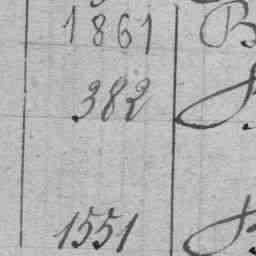 1861 B
382 B
1551 B